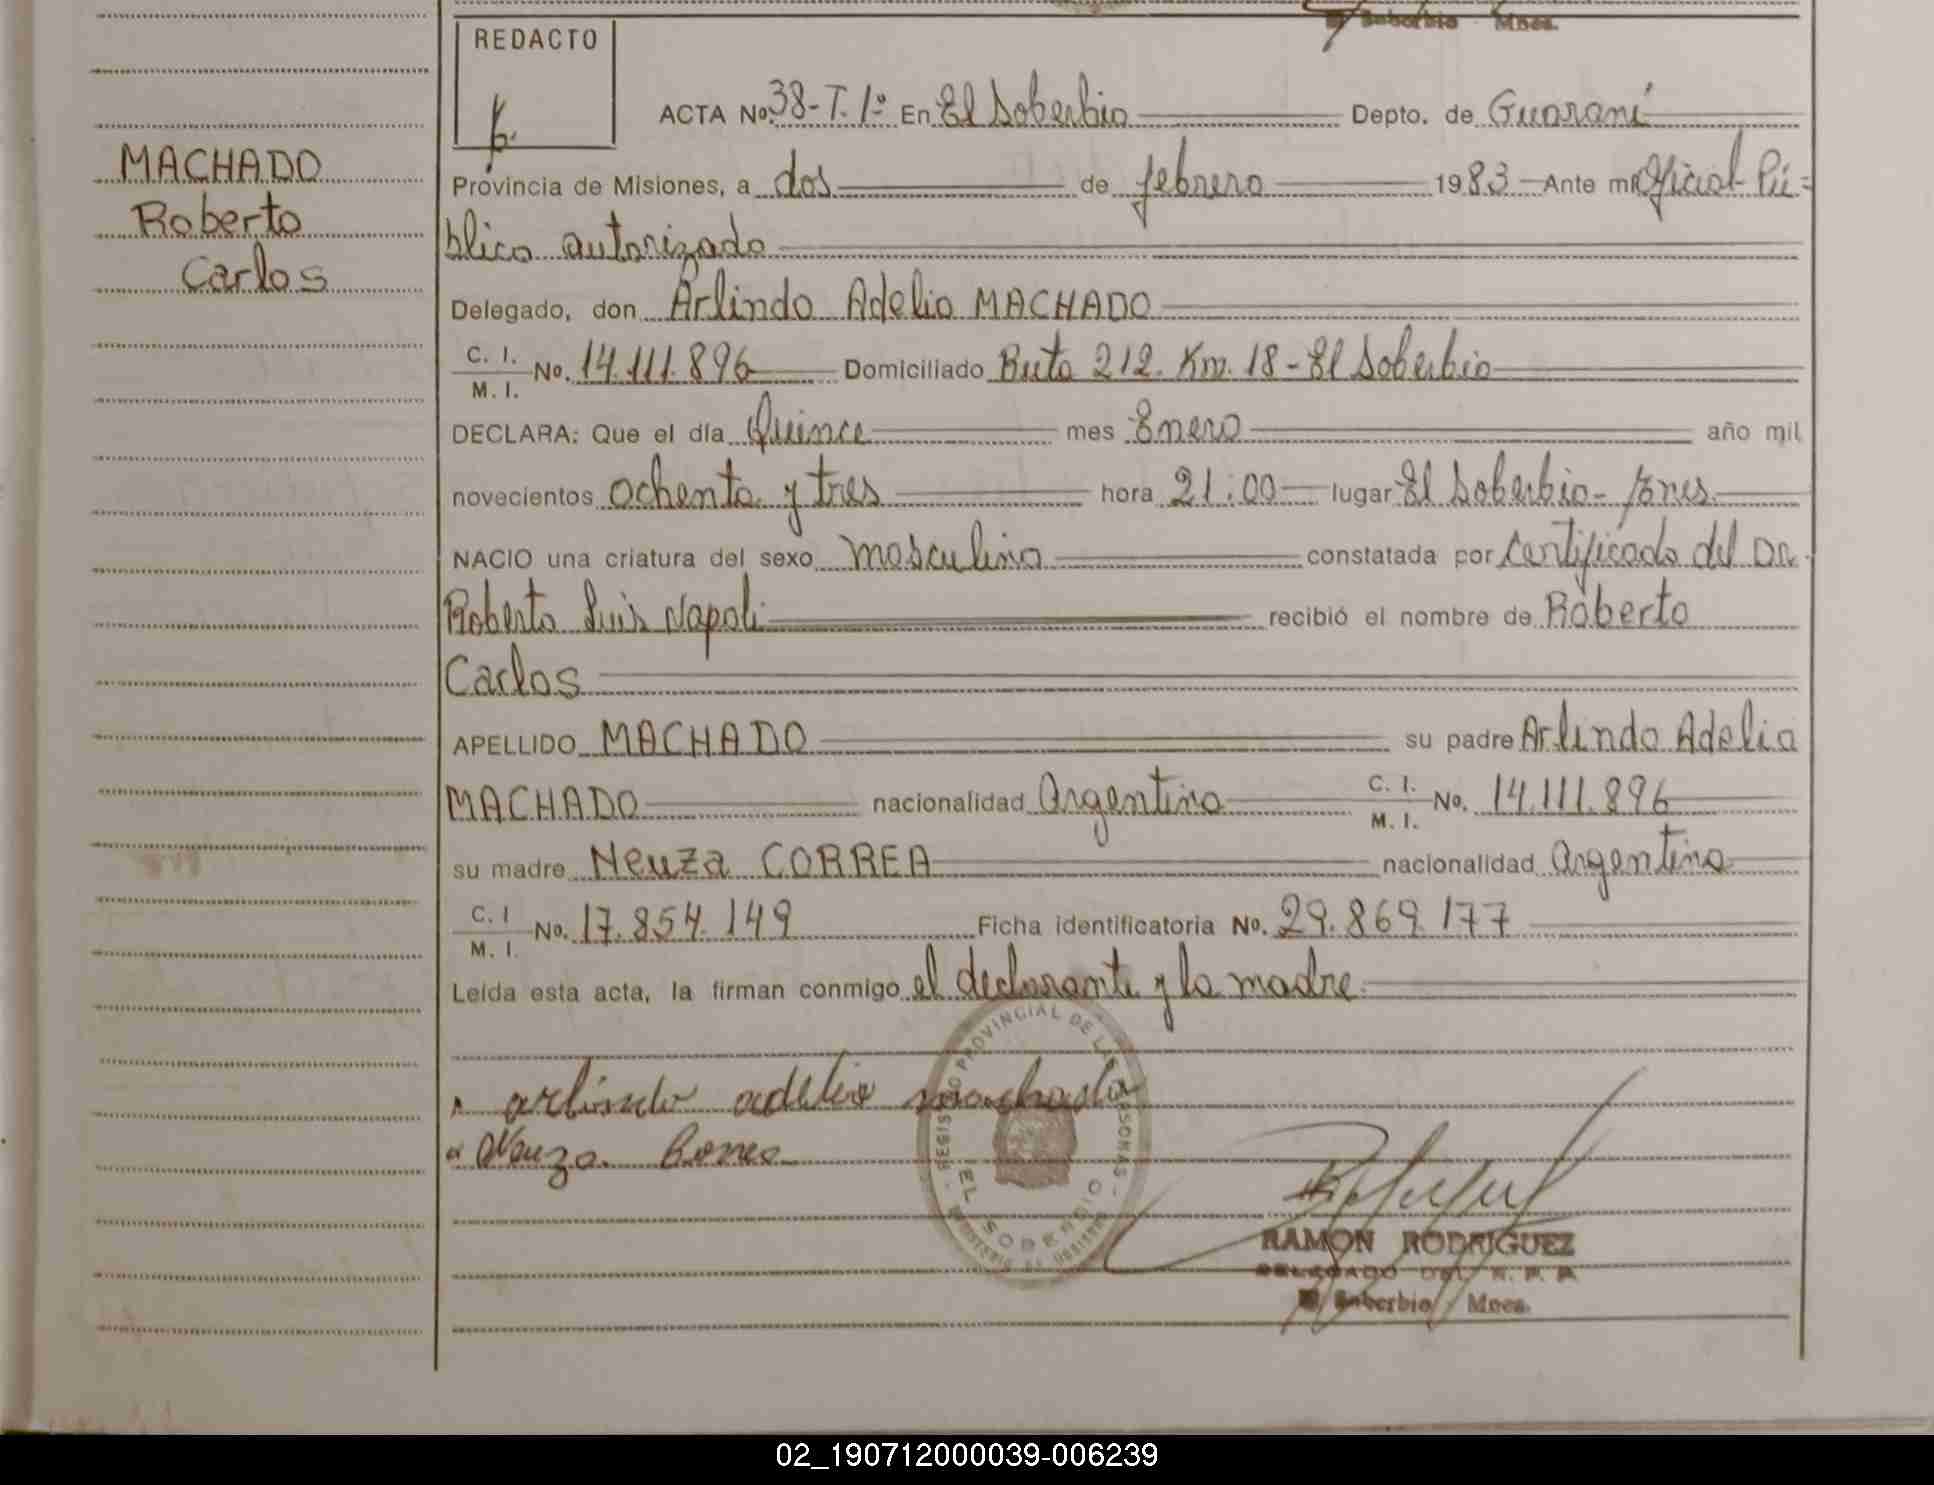 Soberbio Mnes.
REDACTO
ACTA No. 38-T.1º En El Soberbio Depto. de Guaraní
MACHADO
Roberto
Carlos
Provincia de Misiones, a dos de febrero 1983 Ante mi Oficial Pú=
blico autorizado
Delegado, don Arlindo Adelio MACHADO
C. I.
M. I. No. 14.111.896 Domiciliado Ruta 212. Km. 18 - El Soberbio
DECLARA: Que el día Quince mes Enero año mil
novecientos ochenta y tres hora 21:00 lugar El Soberbio - Mnes.
NACIO una criatura del sexo masculino constatada por Certificado del Dr.
Roberto Luis Napoli recibió el nombre de Roberto
Carlos
APELLIDO MACHADO su padre Arlindo Adelio
MACHADO nacionalidad Argentino C. I.
M. I. No. 14.111.896
su madre Neuza CORREA nacionalidad Argentina
C. I
M. I. No. 17.854.149 Ficha identificatoria No. 29.869.177
Leída esta acta, la firman conmigo el declarante y la madre.
arlindo adelio machado
Neuza
REGISTRO PROVINCIAL DE LAS PERSONAS
EL SOBERBIO
RAMON RODRIGUEZ
DELEGADO DEL R. P. P.
El Soberbio Mnes.
02_190712000039-006239